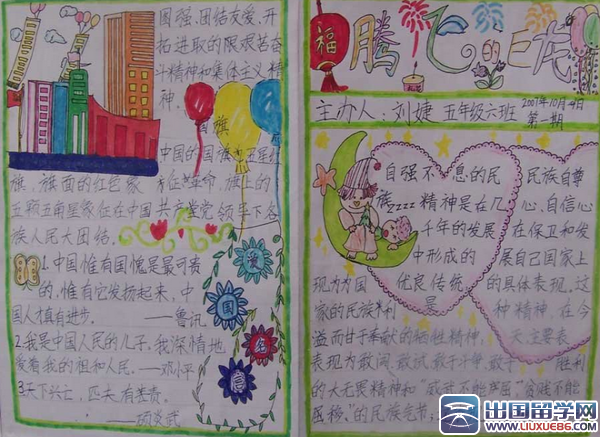 国强、团结友爱、开
拓进取的艰艰苦奋
斗精神和集体主义精
神、
国旗
中国的国旗 五星红
旗，旗面的红色象征革命，旗上的
五颗五角星象征在中国共产党领导下各
族人民大团结。
1.中国惟有国魂是最可贵
的，惟有它发扬起来，中
国人才真有进步。——鲁讯
2.我是中国人民的儿子，我深情地
爱着我的祖和人民。——邓小平
3.天下兴亡，匹夫有责。
——顾炎武
爱
国
名
言
福
腾飞的巨龙
主办人：刘婕 五年级六班 2007年10月4日
第一期
自强不息的民
族zzzz精神是在几
千年的发展
中形成的
优良传统
民族自尊
心、自信心
在保卫和发
展自己国家上
的具体表现。这
现为为国
家的民族利
是
种精神，在今
溢而甘于奉献的牺牲精神，
主要表
表现为敢闯、敢试、敢于斗争、敢于 胜利
的大无畏精神和“威武不能屈，贫贱不能
的民族气节；
出国留学网
WWW.LIUXUE86.COM